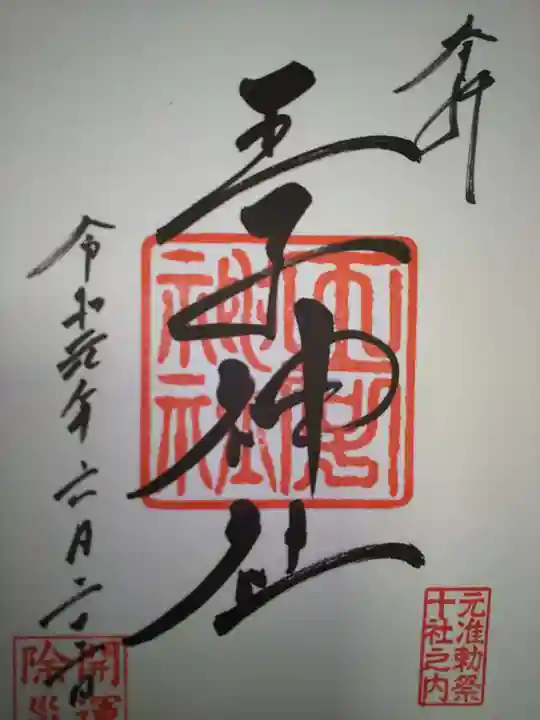 奉拝
王子神社
令和元年六月二十一日
王子神社
元准勅祭
十社之内
開運
除災